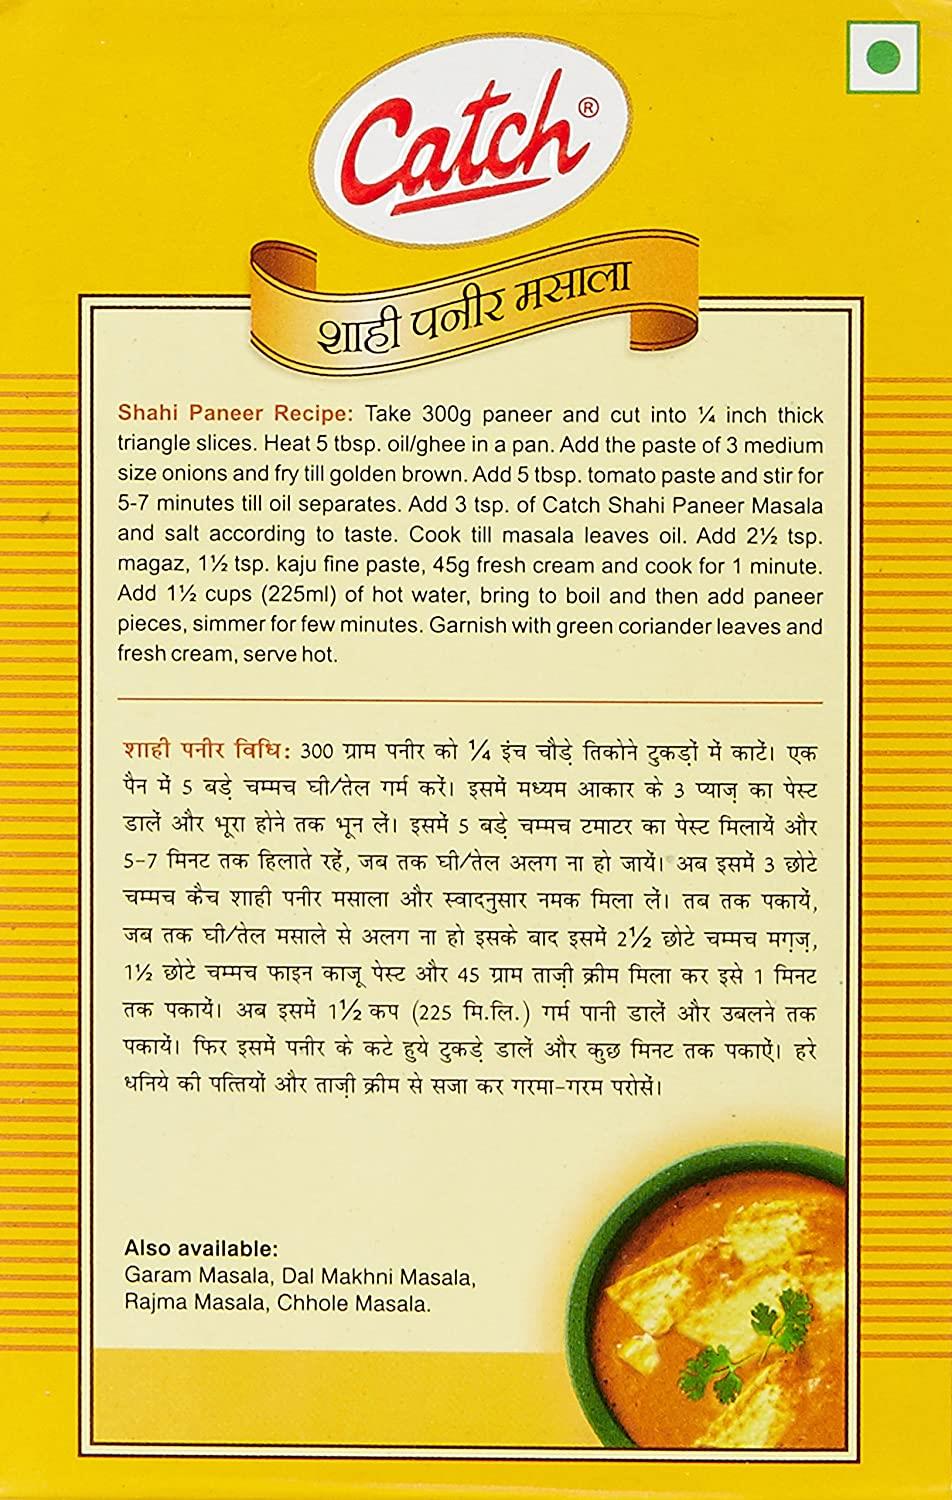 Catch®
शाही पनीर मसाला
Shahi Paneer Recipe: Take 300g paneer and cut into ¼ inch thick
triangle slices. Heat 5 tbsp. oil/ghee in a pan. Add the paste of 3 medium
size onions and fry till golden brown. Add 5 tbsp. tomato paste and stir for
5-7 minutes till oil separates. Add 3 tsp. of Catch Shahi Paneer Masala
and salt according to taste. Cook till masala leaves oil. Add 2½ tsp.
magaz, 1½ tsp. kaju fine paste, 45g fresh cream and cook for 1 minute.
Add 1½ cups (225ml) of hot water, bring to boil and then add paneer
pieces, simmer for few minutes. Garnish with green coriander leaves and
fresh cream, serve hot.
शाही पनीर विधि: 300 ग्राम पनीर को ¼ इंच चौड़े तिकोने टुकड़ों में काटें। एक
पैन में 5 बड़े चम्मच घी/तेल गर्म करें। इसमें मध्यम आकार के 3 प्याज़ का पेस्ट
डालें और भूरा होने तक भून लें। इसमें 5 बड़े चम्मच टमाटर का पेस्ट मिलायें और
5-7 मिनट तक हिलाते रहें, जब तक घी/तेल अलग ना हो जायें। अब इसमें 3 छोटे
चम्मच कैच शाही पनीर मसाला और स्वादनुसार नमक मिला लें। तब तक पकायें,
जब तक घी/तेल मसाले से अलग ना हो इसके बाद इसमें 2½ छोटे चम्मच मगज़,
1½ छोटे चम्मच फाइन काजू पेस्ट और 45 ग्राम ताज़ी क्रीम मिला कर इसे 1 मिनट
तक पकायें। अब इसमें 1½ कप (225 मि.लि.) गर्म पानी डालें और उबलने तक
पकायें। फिर इसमें पनीर के कटे हुये टुकड़े डालें और कुछ मिनट तक पकाऐं। हरे
धनिये की पत्तियों और ताज़ी क्रीम से सजा कर गरमा-गरम परोसें।
Also available:
Garam Masala, Dal Makhni Masala,
Rajma Masala, Chhole Masala.